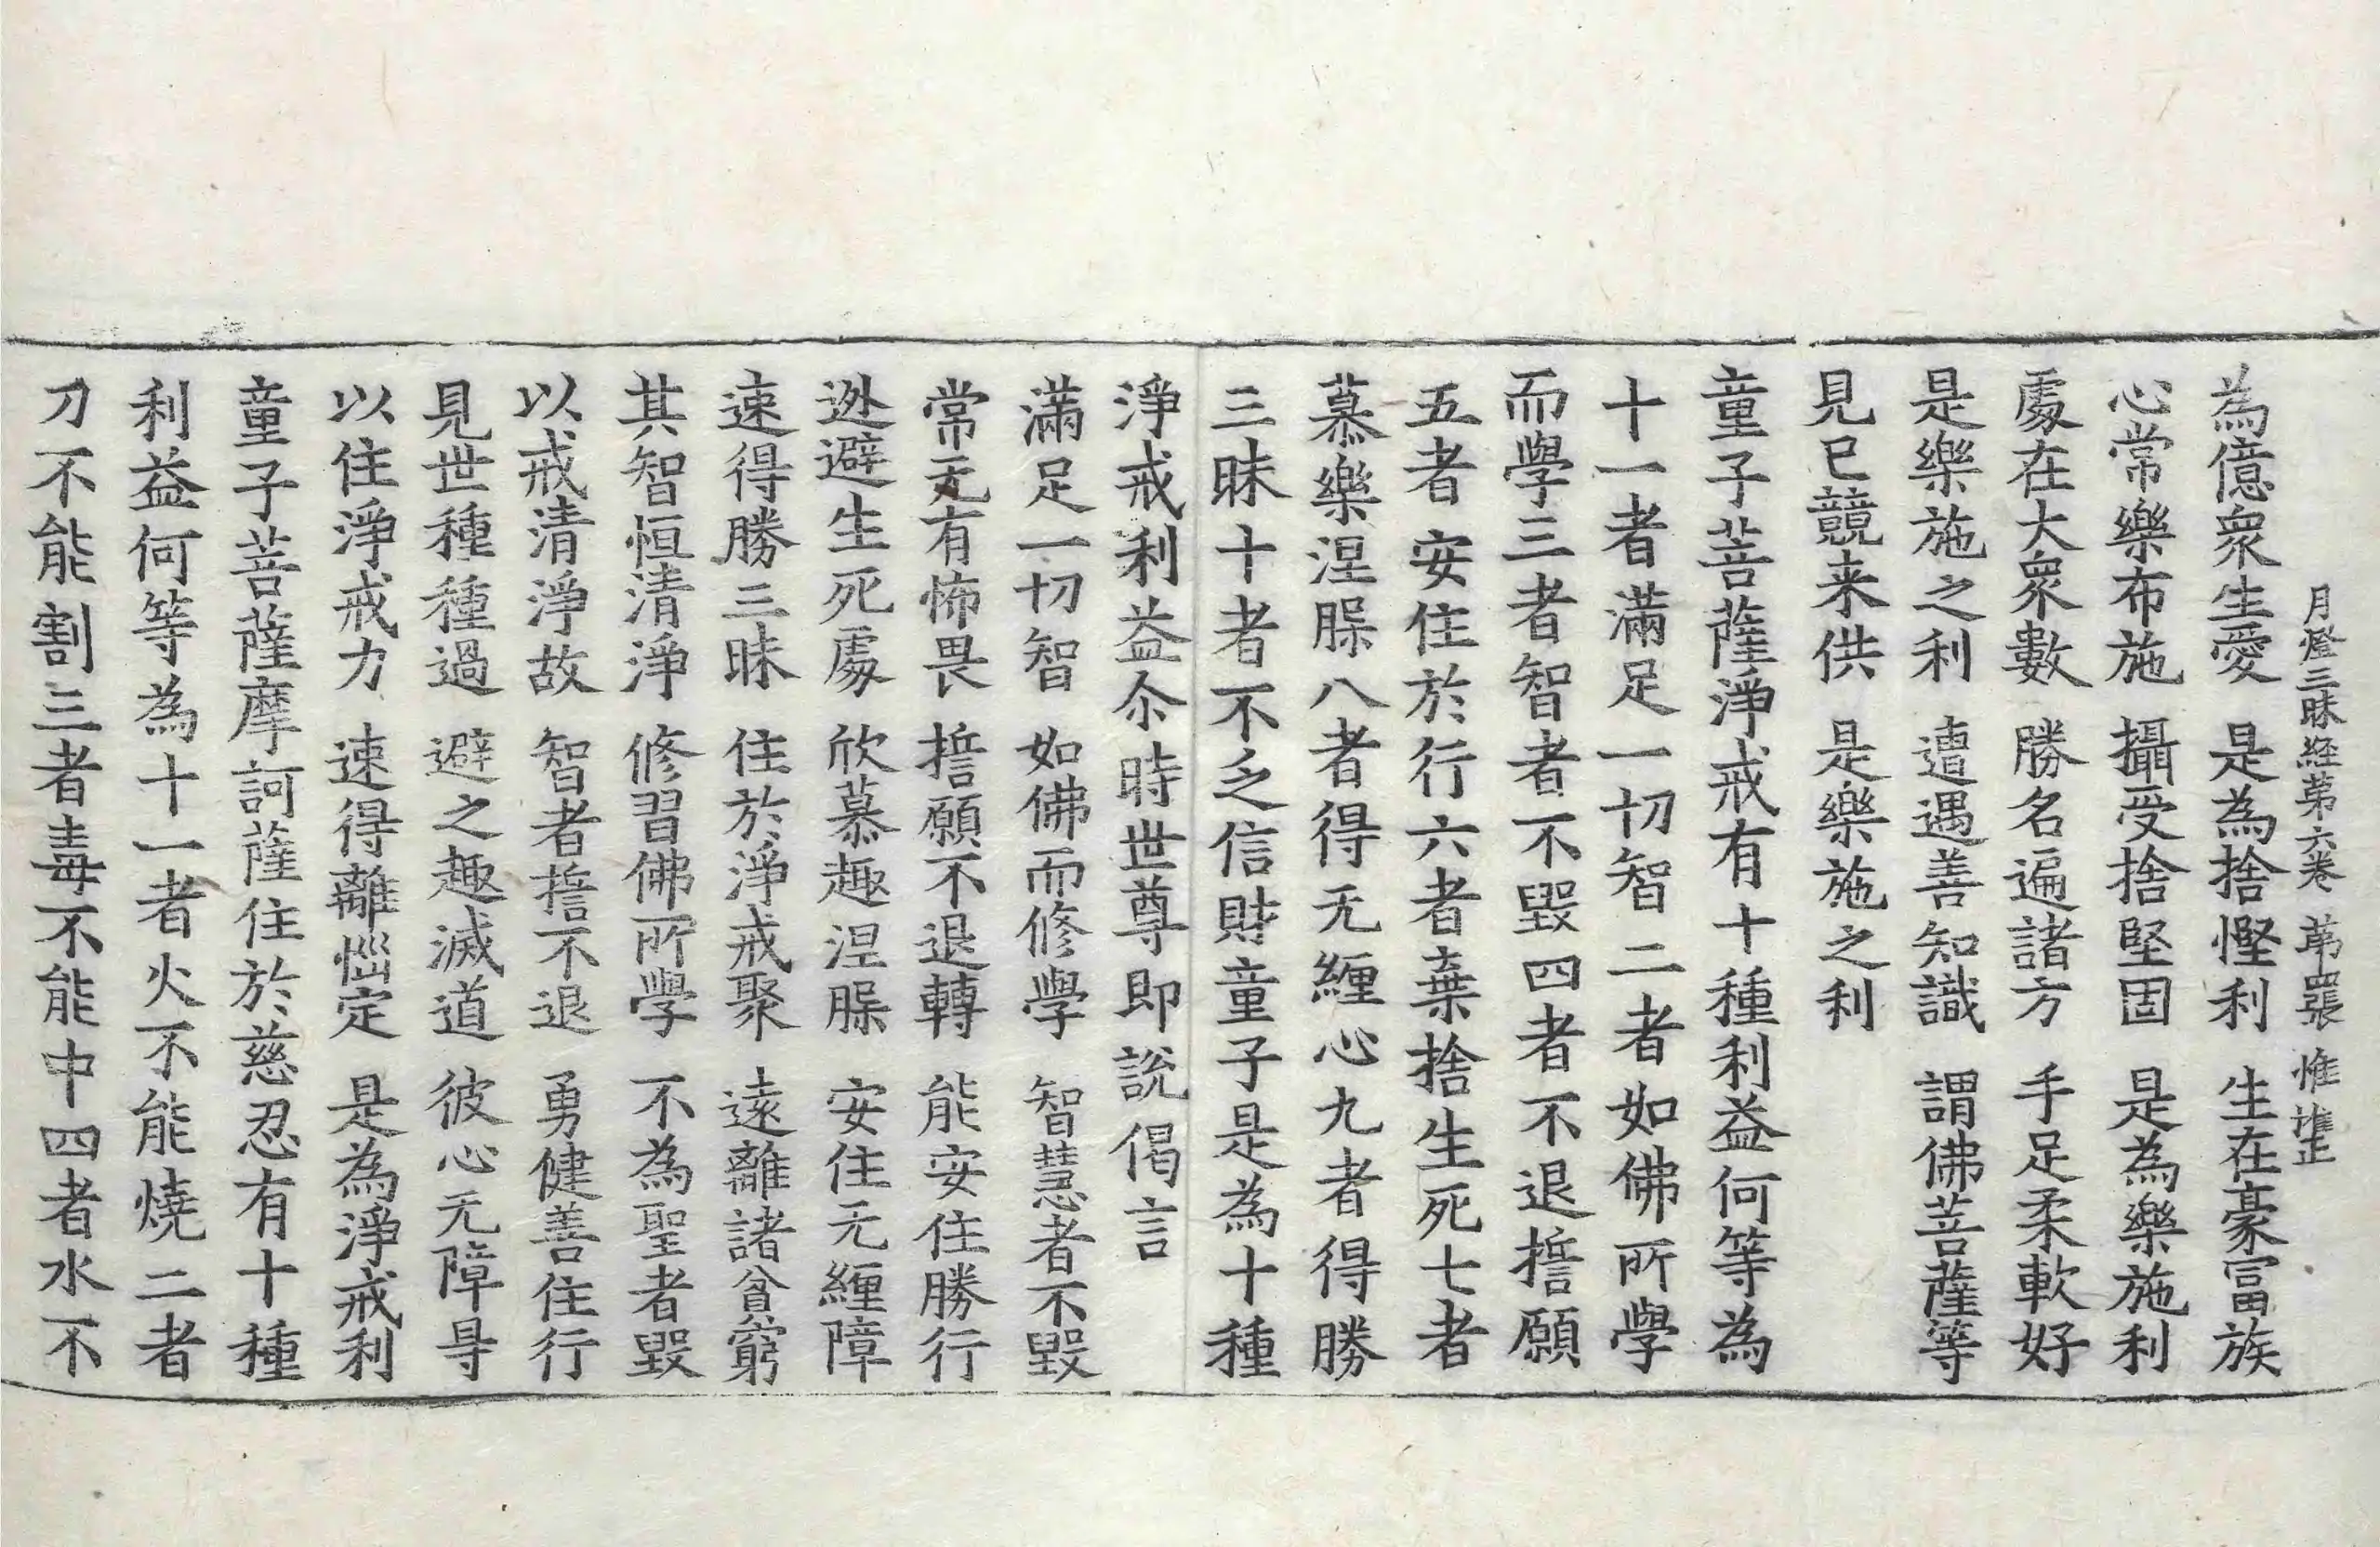 月燈三昧経苐六卷 苐四張 惟準正
為億衆生愛 是為捨慳利 生在豪冨族
心常樂布施 攝受捨堅固 是為樂施利
處在大衆數 勝名遍諸方 手足柔軟好
是樂施之利 遭遇善知識 謂佛菩薩等
見已競来供 是樂施之利
童子菩薩淨戒有十種利益何等為
十一者滿足一切智二者如佛所學
而學三者智者不毀四者不退誓願
五者安住於行六者棄捨生死七者
慕樂涅槃八者得无纏心九者得勝
三昧十者不乏信財童子是為十種
淨戒利益尒時世尊即說偈言
滿足一切智 如佛而修學 智慧者不毀
常无有怖畏 誓願不退轉 能安住勝行
逃避生死處 欣慕趣涅槃 安住无纏障
速得勝三昧 住於淨戒聚 遠離諸貧窮
其智恒清淨 修習佛所學 不為聖者毀
以戒清淨故 智者誓不退 勇健善住行
見世種種過 避之趣滅道 彼心无障㝵
以住淨戒力 速得離惱定 是為淨戒利
童子菩薩摩訶薩住於慈忍有十種
利益何等為十一者火不能燒二者
刀不能割三者毒不能中四者水不